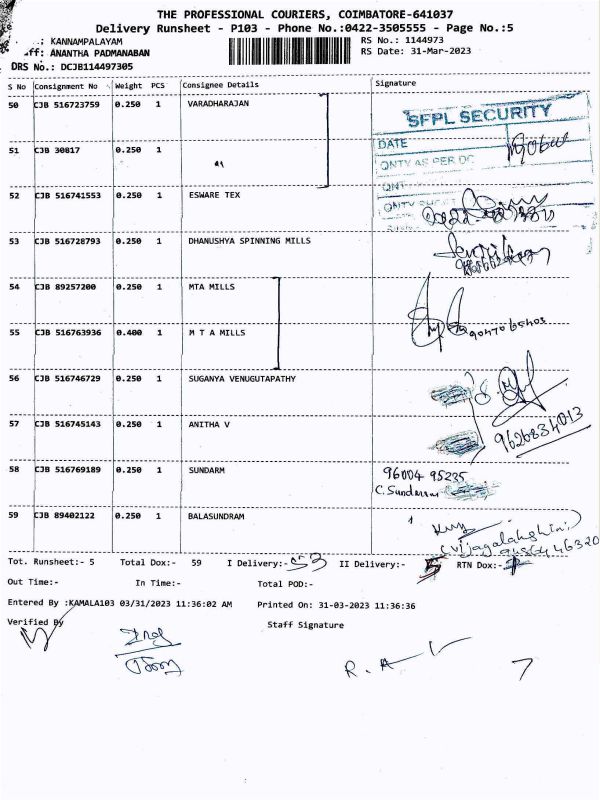 THE PROFESSIONAL COURIERS, COIMBATORE-641037
Delivery Runsheet - P103 - Phone No.:0422-3505555 - Page No.:5
.: KANNAMPALAYAM
RS No.: 1144973
ff: ANANTHA PADMANABAN
RS Date: 31-Mar-2023
DRS No.: DCJB114497305
S No Consignment No Weight PCS Consignee Details Signature
50 CJB 516723759 0.250 1 VARADHARAJAN
SFPL SECURITY
DATE
51 CJB 30817 0.250 1
QNTY AS PER DC
52 CJB 516741553 0.250 1 ESWARE TEX
53 CJB 516728793 0.250 1 DHANUSHYA SPINNING MILLS
54 CJB 89257200 0.250 1 MTA MILLS
9047065403
55 CJB 516763936 0.400 1 M T A MILLS
56 CJB 516746729 0.250 1 SUGANYA VENUGUTAPATHY
57 CJB 516745143 0.250 1 ANITHA V
9626834013
58 CJB 516769189 0.250 1 SUNDARM
96004 95235
C. Sundaram
59 CJB 89402122 0.250 1 BALASUNDRAM
Tot. Runsheet:- 5 Total Dox:- 59 I Delivery:- 53 II Delivery:- 5 RTN Dox:-
Out Time:- In Time:- Total POD:-
Entered By :KAMALA103 03/31/2023 11:36:02 AM Printed On: 31-03-2023 11:36:36
Verified By Staff Signature